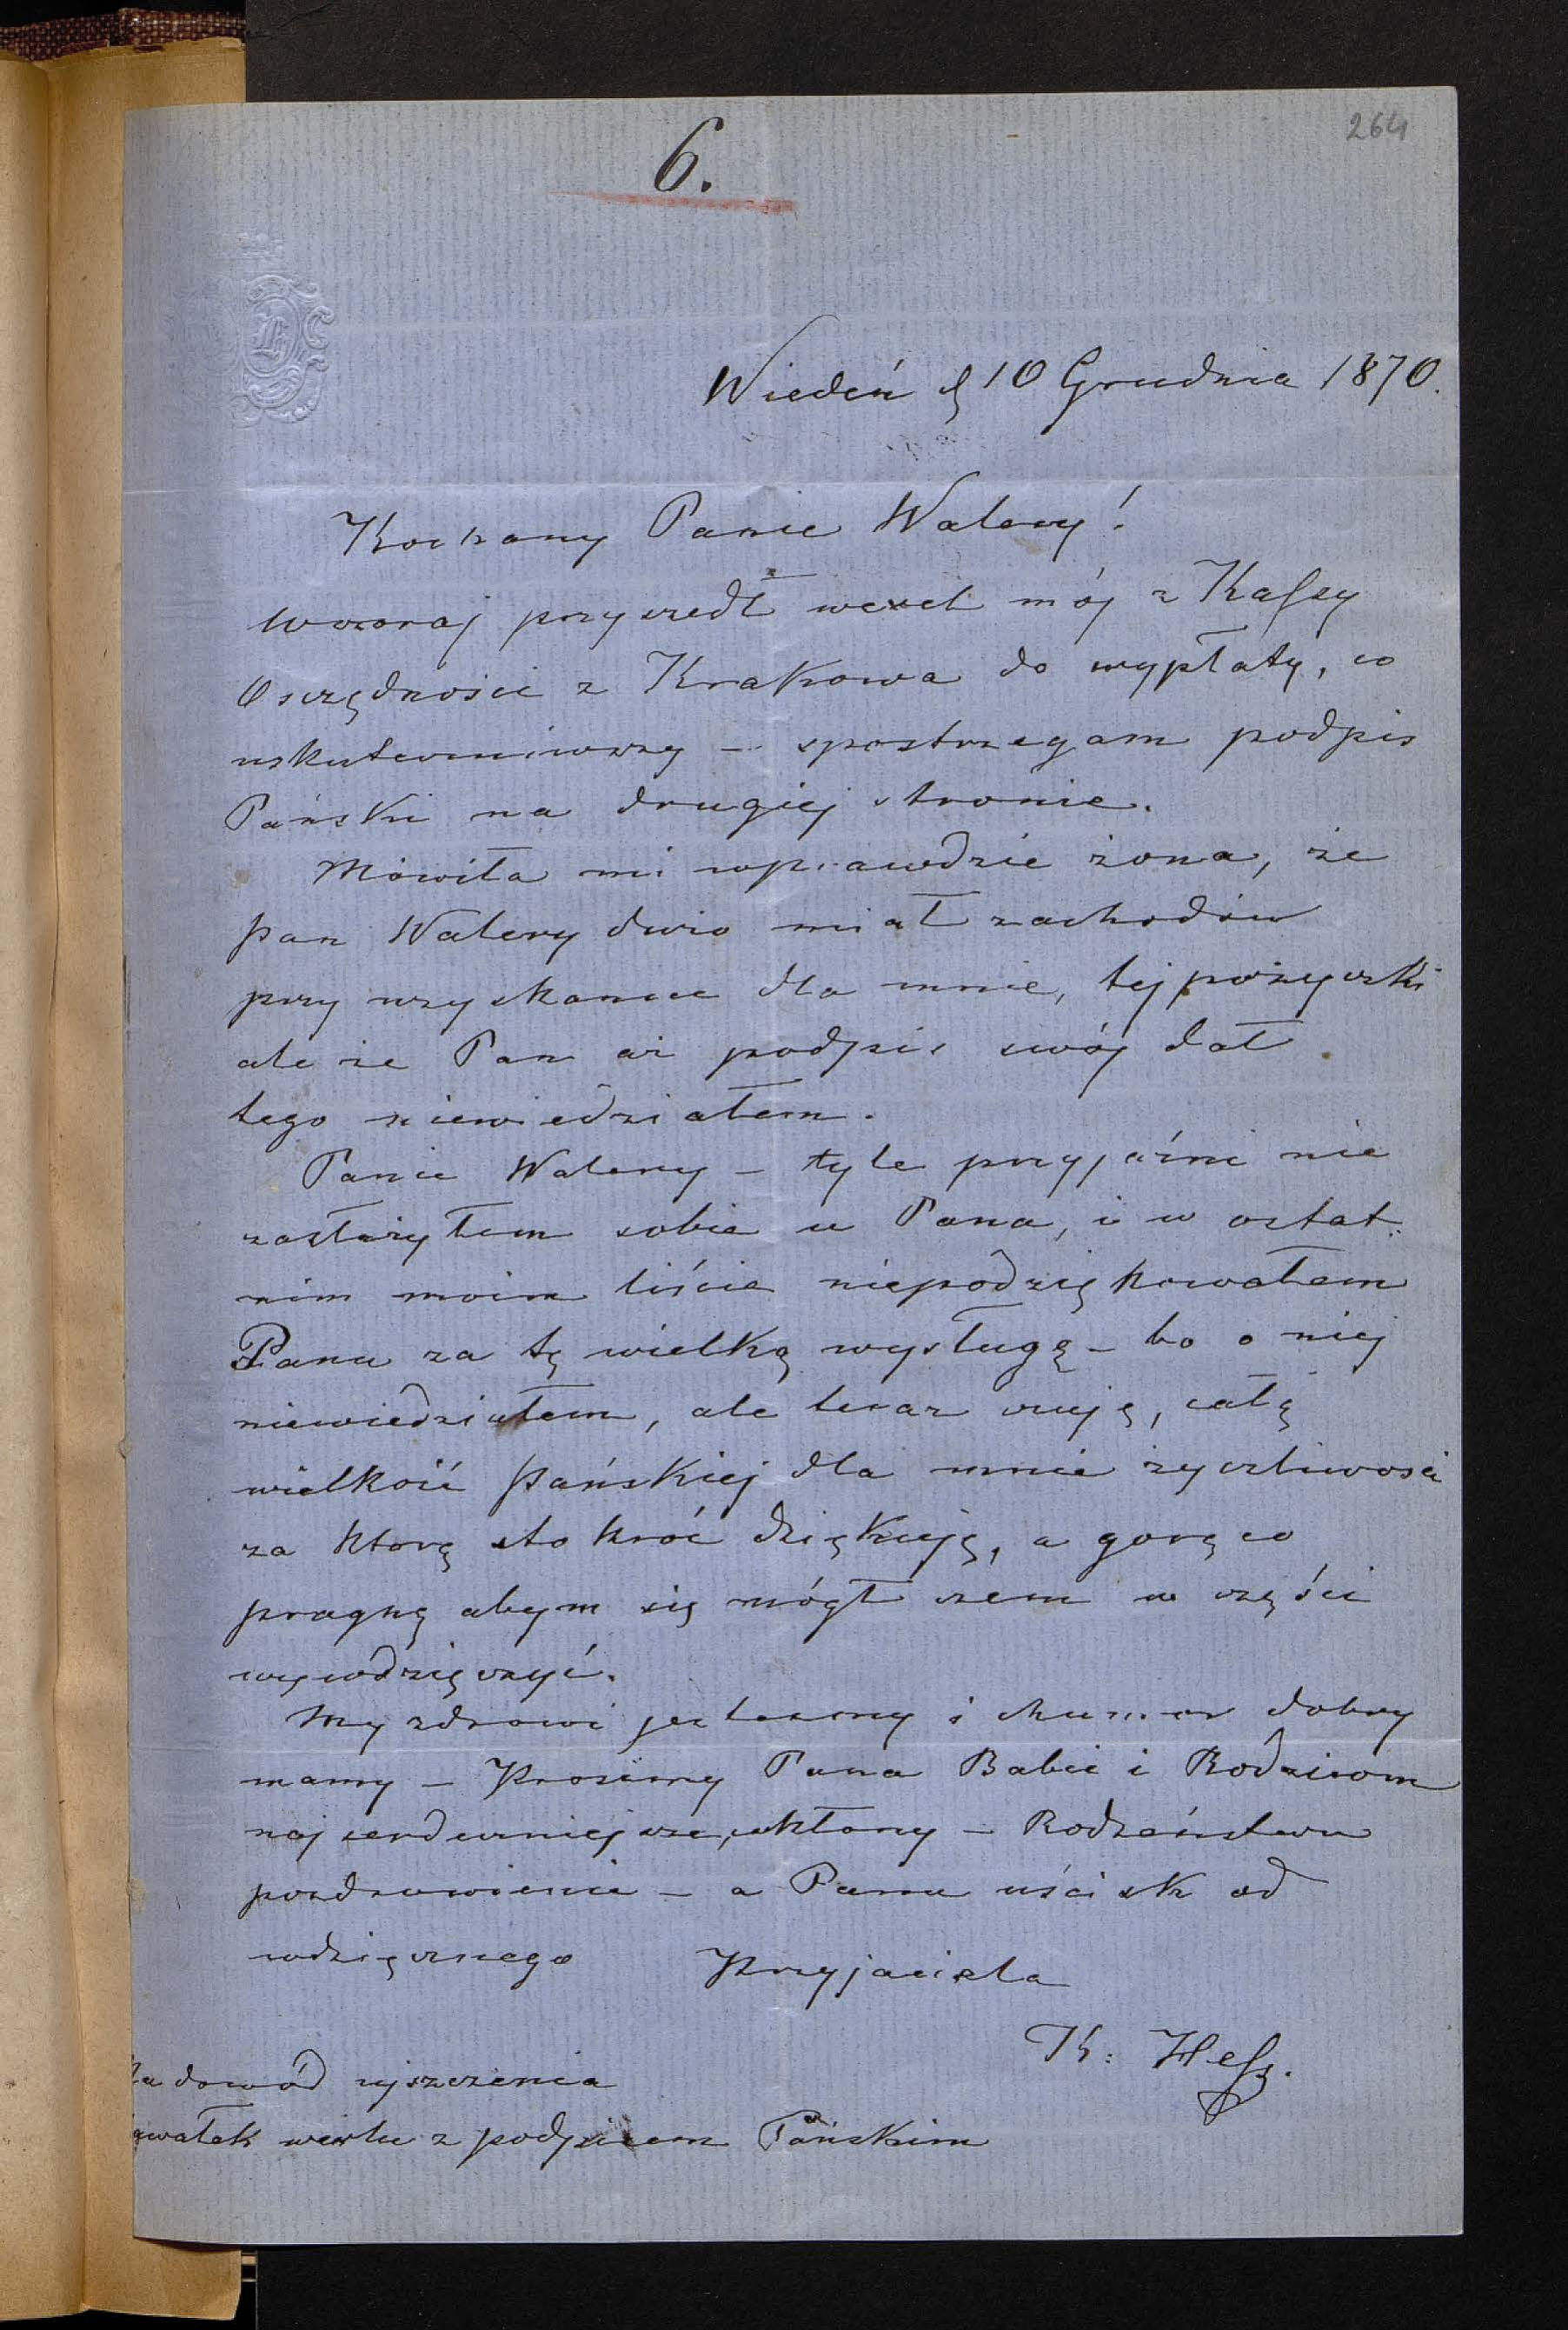 264
6.
Wiedeń d 10 Grudnia 1870.
Kochany Panie Walery!
Wczoraj przyszedł wexel mój z Kassy
Oszczędności z Krakowa do wypłaty, co
uskuteczniwszy – spostrzegam podpis
Pański na drugiej stronie.
Mówiła mi wprawdzie żona, że
pan Walery dużo miał zachodów
przy uzyskaniu dla mnie, tej pożyczki
ale że Pan aż podpis swój dał
tego niewiedziałem.
Panie Walery – tyle przyjaźni nie
zasłużyłem sobie u Pana, i w ostat-
nim moim liście niepodziękowałem
Panu za tę wielką wysługę – bo o niej
niewiedziałem, ale teraz czuję, całą
wielkość Pańskiej dla mnie życzliwości
za którą sto kroć dziękuję, a gorąco
pragnę abym się mógł czem w części
wywdzięczyć.
My zdrowi jesteśmy i chumor dobry
mamy – Prosimy Pana Babci i Rodzicom
najserdeczniejsze ukłony – Rodzeństwu
pozdrowienia – a Panu uścisk od
wdzięcznego Przyjaciela
K: Hess.
Na dowód ziszczenia
kawałek wexlu z podpisem Pańskim